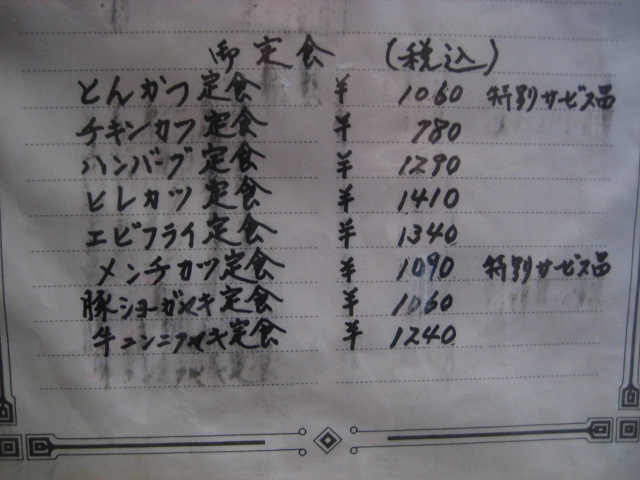 御定食 (税込)
とんかつ定食 ¥ 1060 特別サービス品
チキンカツ定食 ¥ 780
ハンバーグ定食 ¥ 1290
ヒレカツ定食 ¥ 1410
エビフライ定食 ¥ 1340
メンチカツ定食 ¥ 1090 特別サービス品
豚ショーガヤキ定食 ¥ 1060
牛ニンニクヤキ定食 ¥ 1240